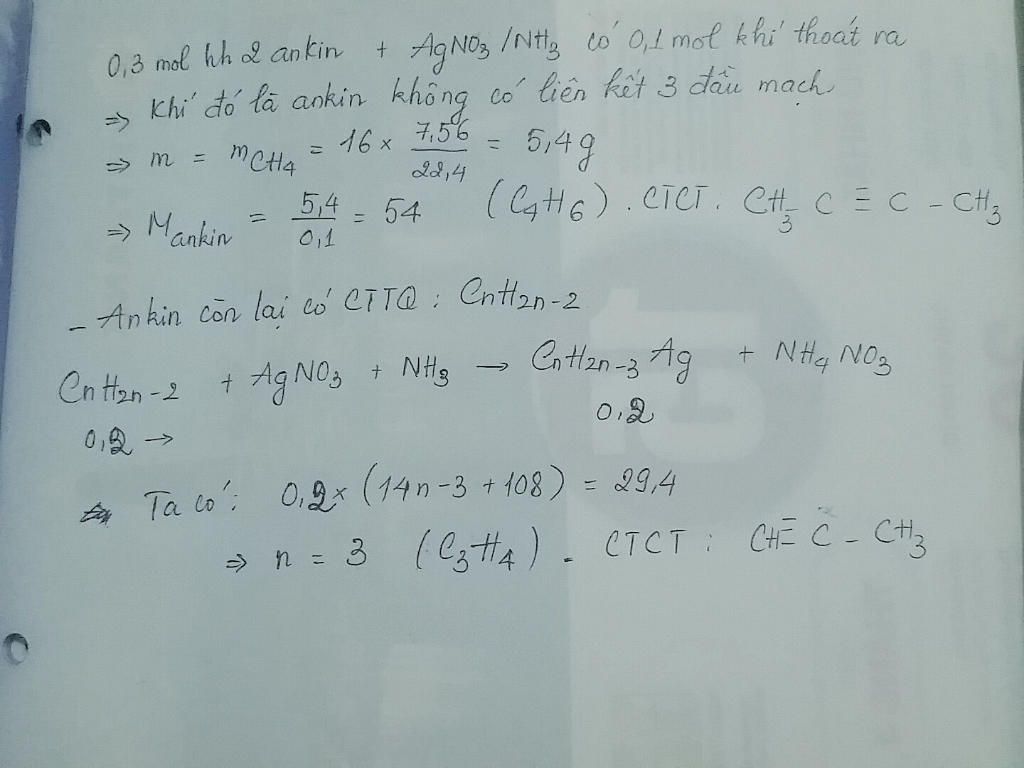 0,3 mol hh 2 ankin + AgNO₃ /NH₃ có 0,1 mol khí thoát ra
⇒ khí đó là ankin không có liên kết 3 đầu mạch
⇒ m = mCH₄ = 16 × 7,56/22,4 = 5,4g
⇒ Mankin = 5,4/0,1 = 54 (C₄H₆). CTCT. CH₃- C ≡ C - CH₃
- Ankin còn lại có CTTQ : CnH2n-2
CnH2n-2 + AgNO₃ + NH₃ → CnH2n-3 Ag + NH₄NO₃
0,2 → 0,2
Ta có: 0,2 × (14n - 3 + 108) = 29,4
⇒ n = 3 (C₃H₄). CTCT : CH≡C - CH₃